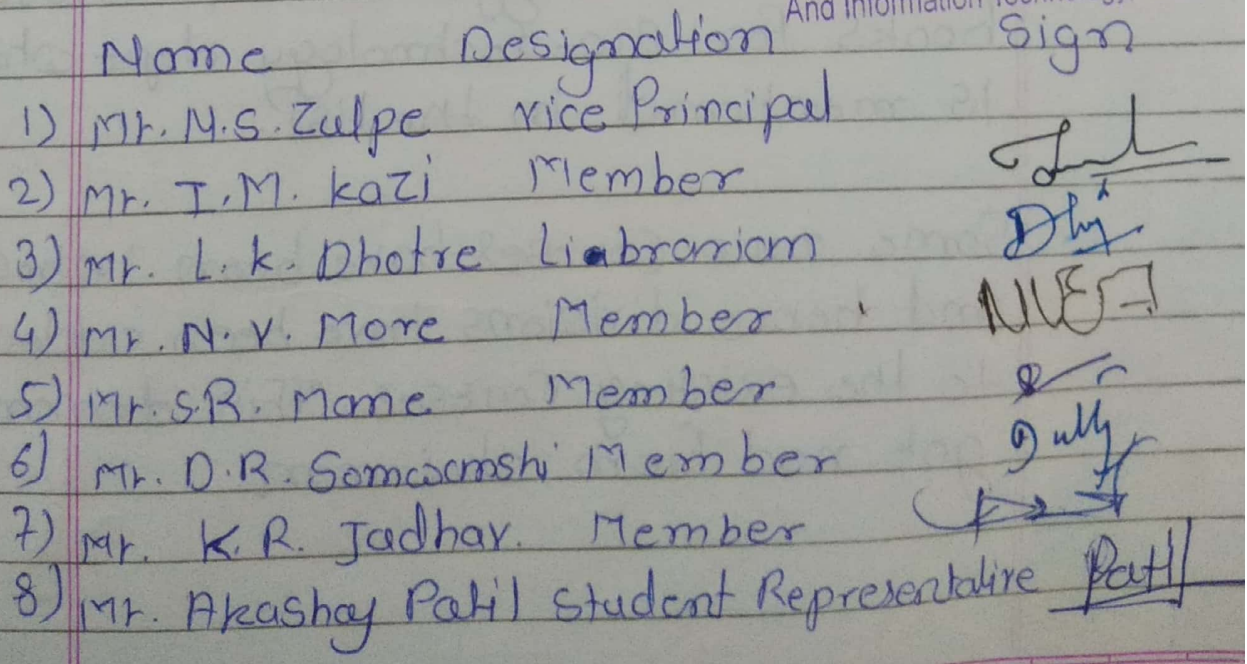 And Information
Name Designation Sign
1) Mr. N.S. Zulpe vice Principal
2) Mr. I.M. Kazi Member
3) Mr. L.K. Dhotre Liabrariam
4) Mr. N.V. More Member
5) Mr. S.R. Mane Member
6) Mr. D.R. Somawamshi Member
7) Mr. K.R. Jadhav. Member
8) Mr. Akashay Patil Student Representative Patil